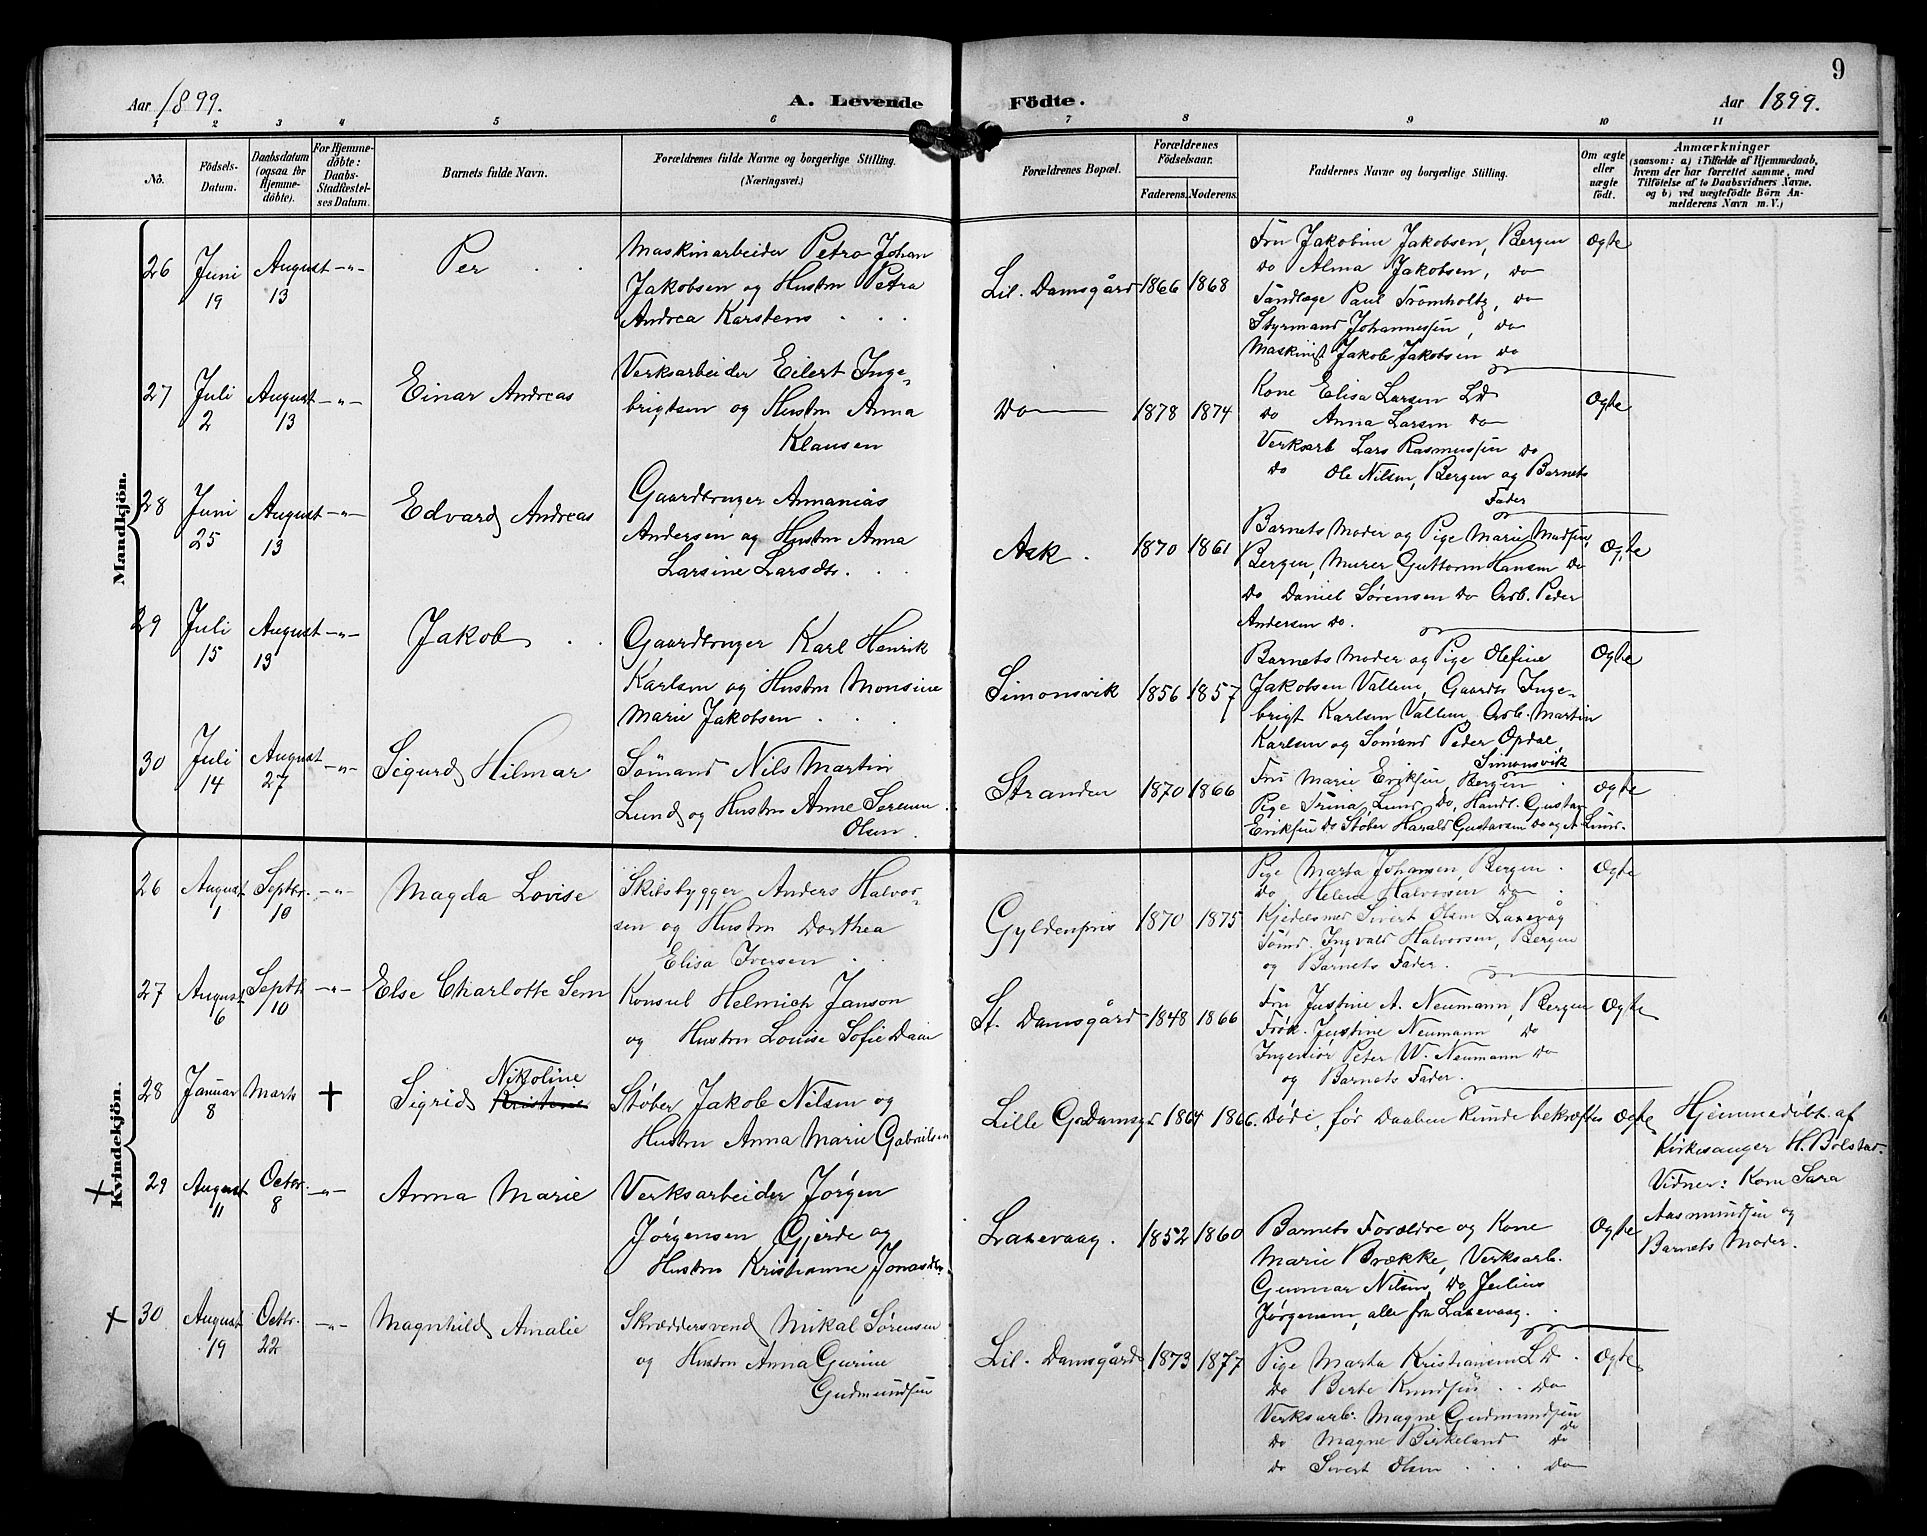 9
Aar 1899.
A. Levende Födte.
Aar 1899.
1 2 3 4 5 6 7 8 9 10 11
No.
Födsels-
Datum.
Daabsdatum
(ogsaa for
Hjemme-
döbte).
For Hjemme-
döbte:
Daabs-
Stadfæstel-
ses Datum.
Barnets fulde Navn.
Forældrenes fulde Navne og borgerlige Stilling.
(Næringsvei.)
Forældrenes Bopæl.
Forældrenes
Födselsaar.
Faderens. Moderens.
Faddernes Navne og borgerlige Stilling.
Om ægte
eller
uægte
födt.
Anmærkninger
(saasom: a) i Tilfælde af Hjemmedaab,
hvem der har forrettet samme, med
Tilföielse af to Daabsvidners Navne,
og b) ved uægtefödte Börn An-
melderens Navn m. V.)
Mandkjön.
26 Juni 19 August 13 -"- Per
Maskinarbeider Petro Johan
Jakobsen og Hustru Petra
Andrea Karstens
Lil. Damsgård 1866 1868
Fru Jakobine Jakobsen, Bergen
Do Alma Jakobsen, do
Tandlæge Paul Tromholtz, do
Styrmand Johannessen, do
Maskinist Jakob Jakobsen do
Ægte
27 Juli 2 August 13 -"- Einar Andreas
Verksarbeider Eilert Inge-
brigtsen og Hustru Anna
Klausen
Do 1878 1874
Kone Elisa Larsen LD
do Anna Larsen do
Verksarb Lars Rasmussen do
do Ole Nilsen, Bergen og Barnets
Fader
Ægte
28 Juni 25 August 13 -"- Edvard Andreas
Gaardbruger Annanias
Andersen og Hustru Anna
Larsine Larsdtr.
Ask. 1870 1861
Barnets Moder og Pige Marie Madsen,
Bergen, Murer Guttorm Hansen do
do Daniel Sørensen do Arb. Peder
Andersen do.
Ægte
29 Juli 15 August 13 -"- Jakob
Gaardbruger Karl Henrik
Karlsen og Hustru Monsine
Marie Jakobsen
Simonsvik 1856 1857
Barnets Moder og Pige Olefine
Jakobsen Vallem, Gaardb Inge-
brigt Karlsen Vallem, Arb. Martin
Karlsen og Sømand Peder Opdal
Simonsvik
Ægte
30 Juli 14 August 27 -"- Sigurd Hilmar
Sømand Nils Martin
Lund og Hustru Anne Serene
Olsen.
Stranden 1870 1866
Fru Marie Eriksen, Bergen
Pige Trina Lund do, Handl. Gustav
Eriksen do Støber Harald Gustavsen do og A Lund.
Ægte
Kvindekjön.
26 August 1 Septbr. 10 -"- Magda Lovise
Skibsbygger Anders Halvor-
sen og Hustru Dorthea
Elisa Iversen
Gyldenpris 1870 1875
Pige Marta Johansen, Bergen
do Helene Halvorsen do
Kjedelsmed Sivert Olsen Laxevåg
Sømd. Ingvald Halvorsen, Bergen
og Barnets Fader.
Ægte
27 August 6 Septb. 10 -"- Else Charlotte Sem
Konsul Helmich Janson
og Hustru Louise Sofie Daae
St. Damsgård 1848 1866
Fru Justine A. Neumann, Bergen
Frøk. Justine Neumann do
Ingeniør Peter W. Neumann do
og Barnets Fader.
Ægte
28 Januar 8 Marts + Sigrid Nikoline
Støber Jakob Nilsen og
Hustru Anna Marie Gabrielsen
Lille Damsgd 1864 1866.
Døde, før Daaben kunde bekræftes Ægte
Hjemmedøbt af
Kirkesanger H. Bolstad.
Vidner: Kone Sara
Aasmundsen og
Barnets Moder.
+ 29 August 11 Octbr. 8 -"- Anna Marie
Verksarbeider Jørgen
Jørgensen Gjerde og
Hustru Kristianne Jonasdtr.
Laxevaag. 1852 1860
Barnets Forældre og Kone
Marie Brække, Verksarb.
Gunnar Nilsen, do Julius
Jørgensen, alle fra Laxevaag.
Ægte
+ 30 August 19 Octbr. 22 -"- Magnhild Amalie
Skræddersvend Mikal Sørensen
og Hustru Anna Gurine
Gudmundsen
Lil. Damsgård 1873 1877
Pige Marta Kristiansen LD
do Berte Knudsen do
Verksarb. Magne Gudmundsen do
do Magne Birkeland do
do Sivert Olsen do
Ægte